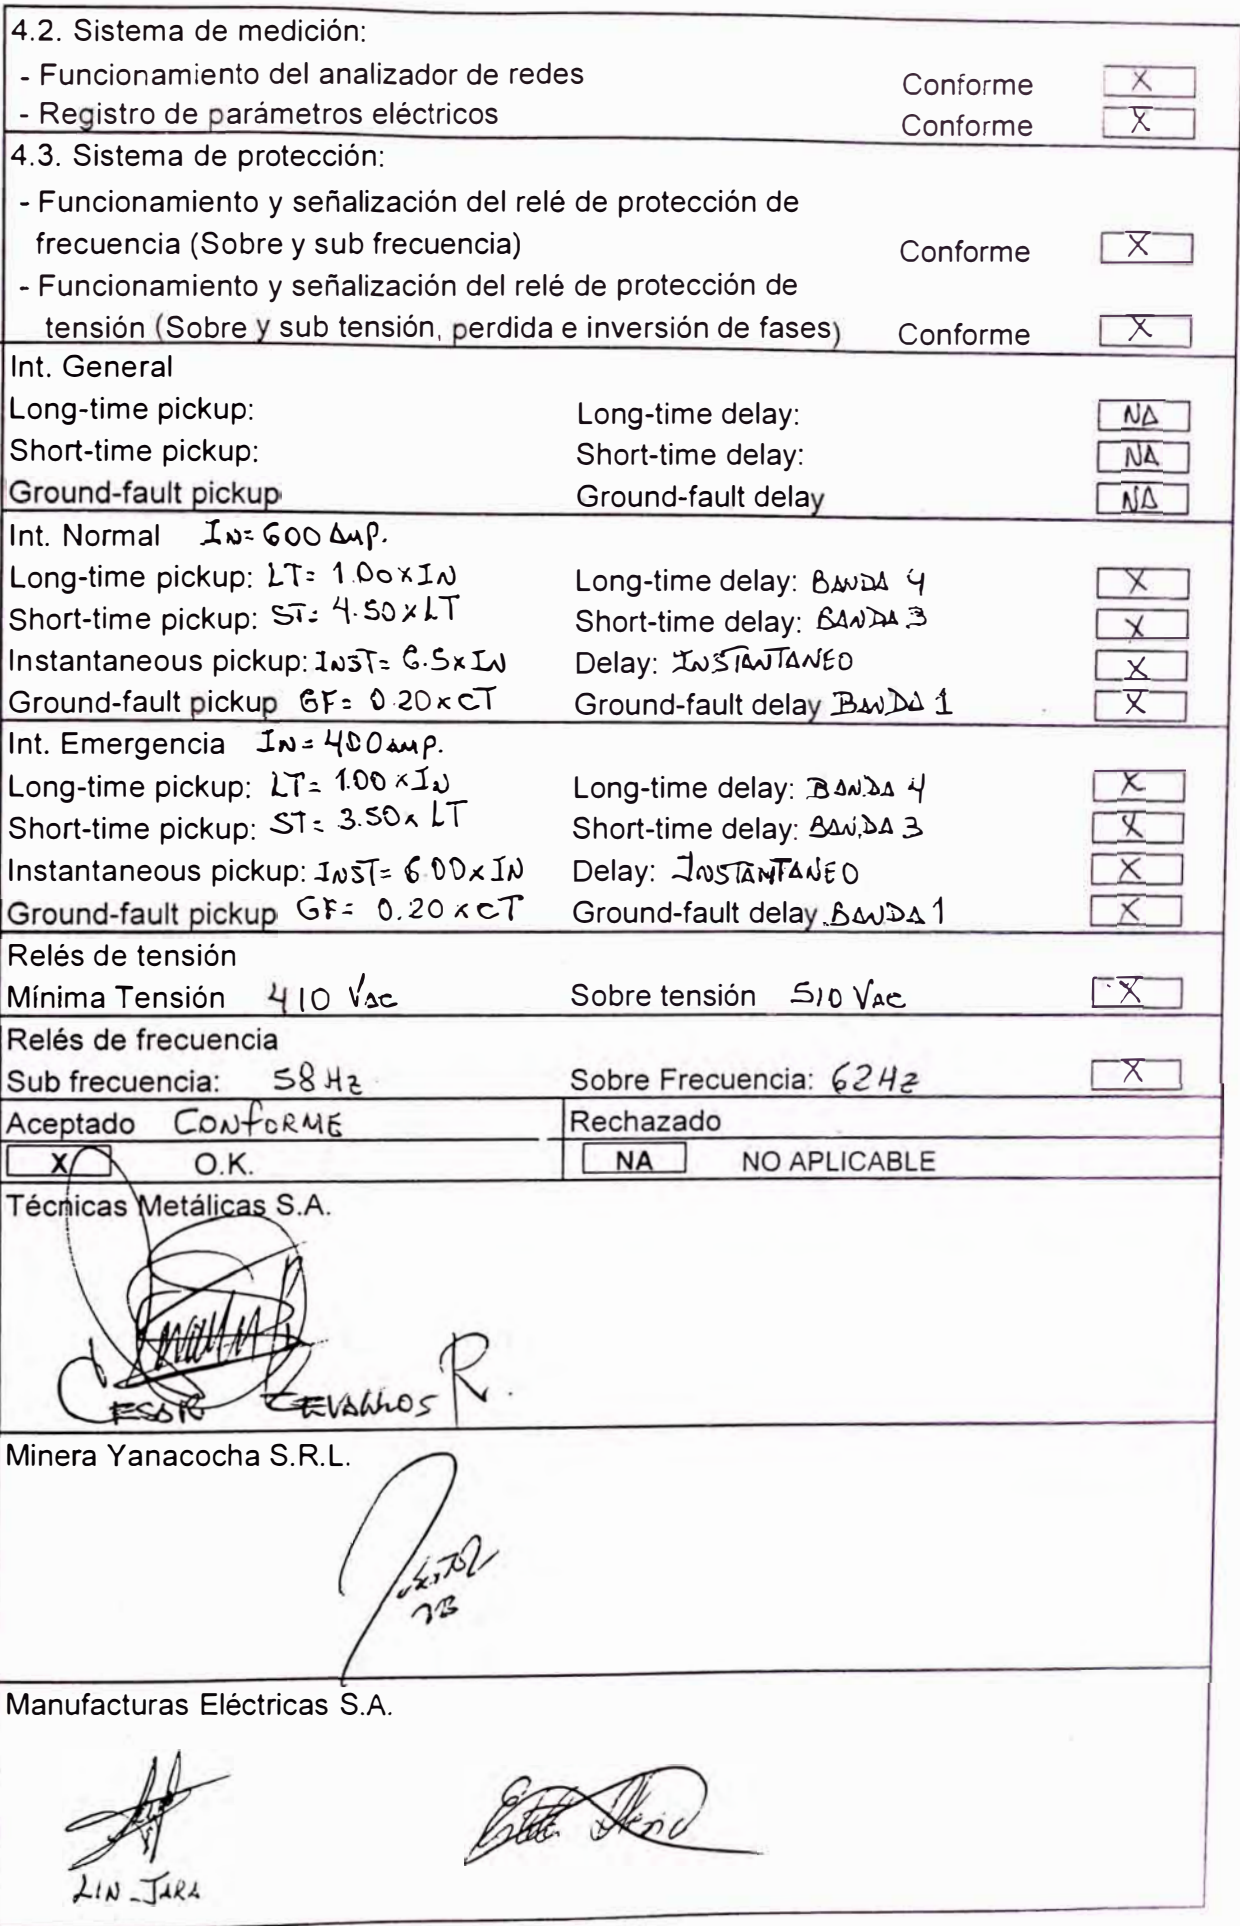 4.2. Sistema de medición:
- Funcionamiento del analizador de redes Conforme X
- Registro de parámetros eléctricos Conforme X
4.3. Sistema de protección:
- Funcionamiento y señalización del relé de protección de
frecuencia (Sobre y sub frecuencia) Conforme X
- Funcionamiento y señalización del relé de protección de
tensión (Sobre y sub tensión, perdida e inversión de fases) Conforme X
Int. General
Long-time pickup: Long-time delay: NA
Short-time pickup: Short-time delay: NA
Ground-fault pickup Ground-fault delay NA
Int. Normal IN= 600 Amp.
Long-time pickup: LT= 1.00xIN Long-time delay: BANDA 4 X
Short-time pickup: ST= 4.50xLT Short-time delay: BANDA 3 X
Instantaneous pickup: INST= 6.5xIN Delay: INSTANTANEO X
Ground-fault pickup GF= 0.20xCT Ground-fault delay BANDA 1 X
Int. Emergencia IN= 400 amp.
Long-time pickup: LT= 1.00 xIN Long-time delay: BANDA 4 X
Short-time pickup: ST= 3.50x LT Short-time delay: BANDA 3 X
Instantaneous pickup: INST= 6.00xIN Delay: INSTANTANEO X
Ground-fault pickup GF= 0.20 xCT Ground-fault delay BANDA 1 X
Relés de tensión
Mínima Tensión 410 VAC Sobre tensión 510 VAC X
Relés de frecuencia
Sub frecuencia: 58 Hz Sobre Frecuencia: 62 Hz X
Aceptado CONFORME Rechazado
X O.K. NA NO APLICABLE
Técnicas Metálicas S.A.
CESAR ZEVALLOS R.
Minera Yanacocha S.R.L.
Manufacturas Eléctricas S.A.
LIN-JARA